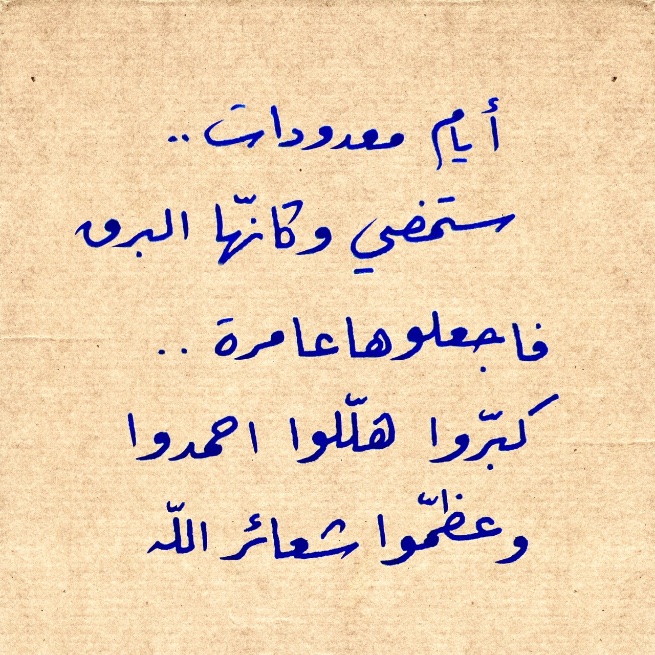 أيام معدودات ..
ستمضي وكانّها البرق
فاجعلوها عامرة ..
كبّروا هلّلوا احمدوا
وعظّموا شعائر اللّه